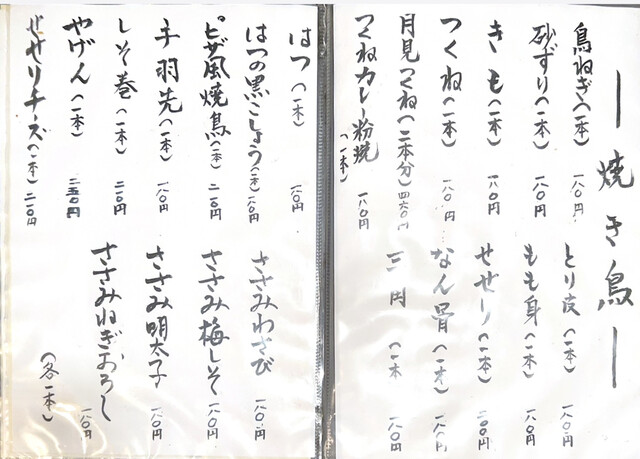 焼き鳥
鳥ねぎ(一本) 一八〇円
砂ずり(一本) 一八〇円
きも(一本) 一八〇円
つくね(一本) 一八〇円
月見つくね(二本分) 四六〇円
つくねカレー粉焼(一本) 一八〇円
とり皮(一本) 一八〇円
もも身(一本) 一八〇円
せせり(一本) 二〇〇円
なん骨(一本) 一八〇円
三角(一本 一八〇円
はつ(一本) 一八〇円
はつの黒こしょう(一本) 一八〇円
ピザ風焼鳥(一本) 二一〇円
手羽先(一本) 一八〇円
しそ巻(一本) 二一〇円
やげん(一本) 二五〇円
せせりチーズ(一本) 二三〇円
ささみわさび 一八〇円
ささみ梅しそ 一八〇円
ささみ明太子 一八〇円
ささみねぎおろし 一八〇円
(各一本)